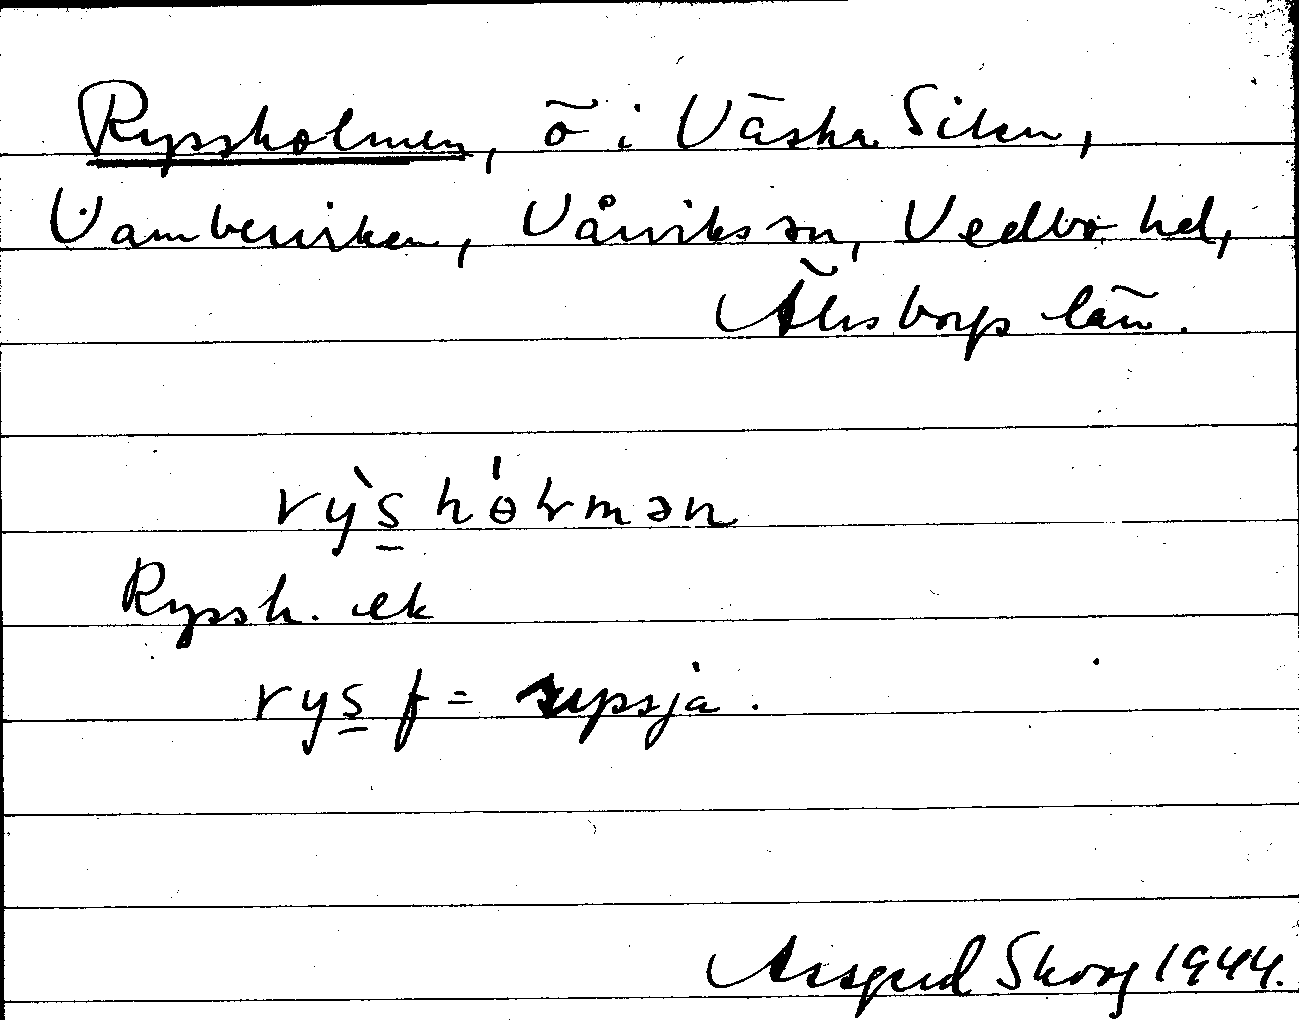 Ryssholmen, ö i Västra Silen,
Vambervirken, Vårviks sn, Vedbo hd,
Älvsborgs län.
rỳs̲ hɵ̍ɽmən
Ryssh. ek
rys̲ f = ryssja.
Assgerd Skoog 1944.